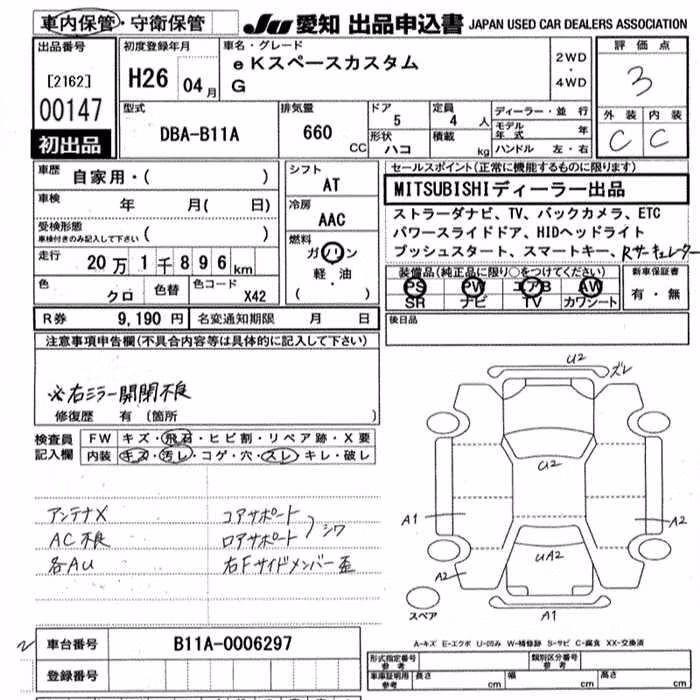 車内保管・守衛保管
JU 愛知 出品申込書 JAPAN USED CAR DEALERS ASSOCIATION
出品番号 [2162] 00147
初出品
初度登録年月 H26 04月
車名・グレード eKスペースカスタム G
2WD・4WD
評価点 3
外装 C 内装 C
型式 DBA-B11A
排気量 660 CC
ドア 5
形状 ハコ
定員 4 人
積載 kg
ディーラー・並行
モデル年式 年
ハンドル 左・右
車歴 自家用・( )
車検 年 月( 日)
受検形態 車検付きのみ記入して下さい ( )
走行 20万1千896km
色 クロ 色替 色コード X42
シフト AT
冷房 AAC
燃料 ガソリン
軽・油
( )
セールスポイント(正常に機能するものに限ります)
MITSUBISHIディーラー出品
ストラーダナビ、TV、バックカメラ、ETC
パワースライドドア、HIDヘッドライト
プッシュスタート、スマートキー、Rサーキュレーター
装備品(純正品に限り○をつけてください)
PS PW エアB AW
SR ナビ TV カワシート
新車保証書 有・無
R券 9,190 円 名変通知期限 月 日
後日品
注意事項申告欄(不具合内容等は具体的に記入して下さい)
※右ミラー開閉不良
修復歴 有 (箇所 )
検査員記入欄
FW キズ・飛石・ヒビ割・リペア跡・X要
内装 キズ・汚レ・コゲ・穴・スレ・キレ・破レ
アンテナX コアサポート
AC不良 ロアサポート シワ
各AU 右Fサイドメンバー歪
U2 ズレ
U2
A1 A2
UA2
A2
スペア A1
A-キズ E-エクボ U-凹み W-補修跡 S-サビ C-腐食 XX-交換済
車台番号 B11A-0006297
登録番号
形式指定番号 参考 類別区分番号 参考
車庫証明用 参考 長さ cm 幅 cm 高さ cm